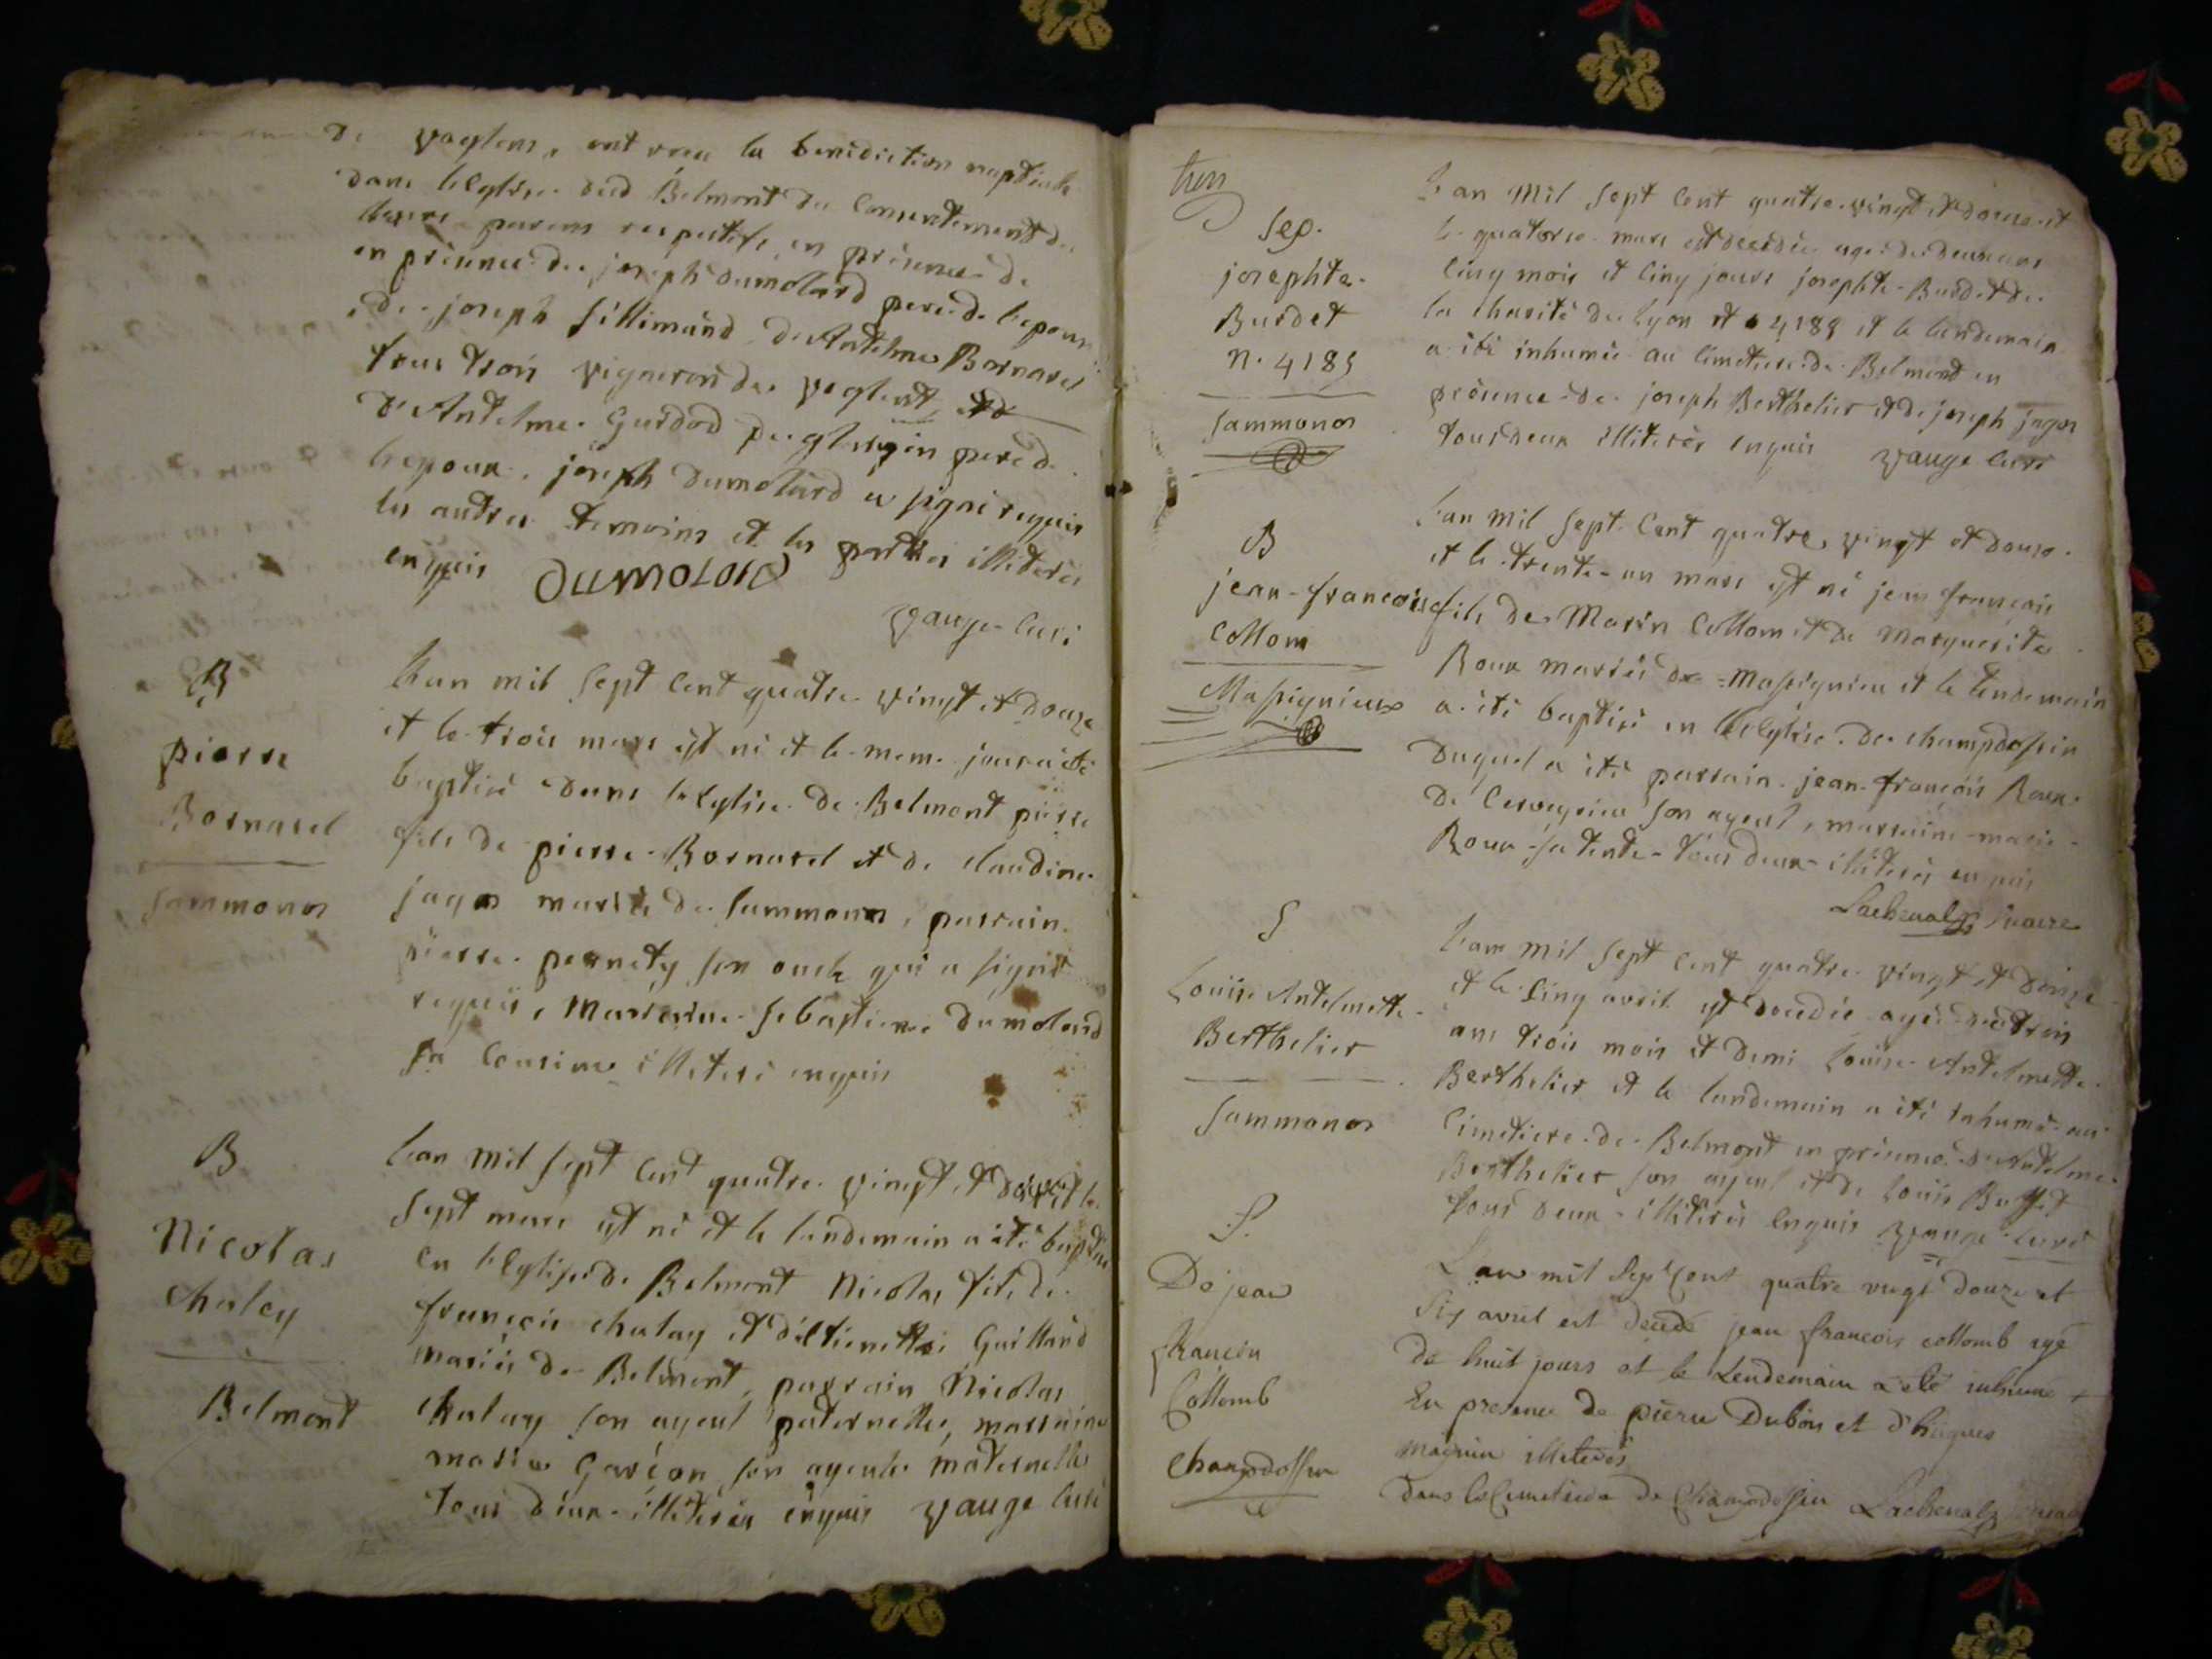 de voglens, ont recu la benediction nuptiale
dans leglise dud Belmont du Consentement de
leurs parens respectifs, en présence de
en présence de joseph dumolard pere de lepoux
de joseph sillimand d'Antelme Bornarel
tous trois vignerons de voglent et
d'Antelme Gurdod pere de
lepoux. joseph dumolard a signé requis
les autres temoins et les parties illiteres
enquis Dumolard
vauge curé
B
pierre
Bornarel
Sammonos
Lan mil sept cent quatre vingt et douze
et le trois mars est né et le meme jour a été
baptisé dans leglise de Belmont pierre
fils de pierre Bornarel et de claudine
jagos mariés de Sammonos, parrain
pierre pernety son oncle qui a signé
requis, Marraine Sebastiene dumolard
sa cousine illeteré enquis
B
Nicolas
chaley
Belmont
Lan mil sept cent quatre vingt et douze et le
sept mars est né et le landemain a été baptisé
en leglise de Belmont Nicolas fils de
françois chaley et d'estiennette Guilland
mariés de Belmont, parrain Nicolas
chaley son ayeul paternelle, marraine
marie Garçon son ayeule maternelle
tous deux illiterés enquis vauge curé
Sep.
josephte
Burdet
n. 4189
Sammonos
Lan mil sept cent quatre vingt et douze et
le quatorse mars est decedée agée de deux ans
cinq mois et cinq jours josephte Burdet de
la charité de Lyon n 4189 et le lendemain
a été inhumée au cimetiere de Belmond en
présence de joseph Berthelier et de joseph jagos
tous deux illiterés enquis vauge curé
B
jean-francois
Collom
Massignieux
Lan mil sept cent quatre vingt et douze
et le trente-un mars est né jean françois
fils de Marin Collom et de Marguerite
Roux mariés de Massignieu et le lendemain
a été baptisé en leglise de champdossin
Duquel a été parrain jean-françois Roux
de Cerveyrieu son ayeul, marraine marie
Roux sa tente tous deux illiterés enquis
Lachenalz vicaire
S
Louise Antelmette
Berthelier
Sammonos
Lan mil sept cent quatre vingt et douze
et le cinq avril est décédée agée de trois
ans trois mois et demi Louise Antelmette
Berthelier et le landemain a été inhumé au
cimetiere de Belmont en présence d'Antelme
Berthelier son ayeul et de Louis Buffet
tous deux illiterés enquis vauge curé
S.
De jean
francois
Collomb
Champdossin
L'an mil sept cent quatre vingt douze et
six avril est décédé jean francois collomb agé
de huit jours et le Lendemain a été inhumé +
En presence de pierre Dubois et d'hugues
magnin illeterés
dans le cimetiere de Champdossin Lachenalz